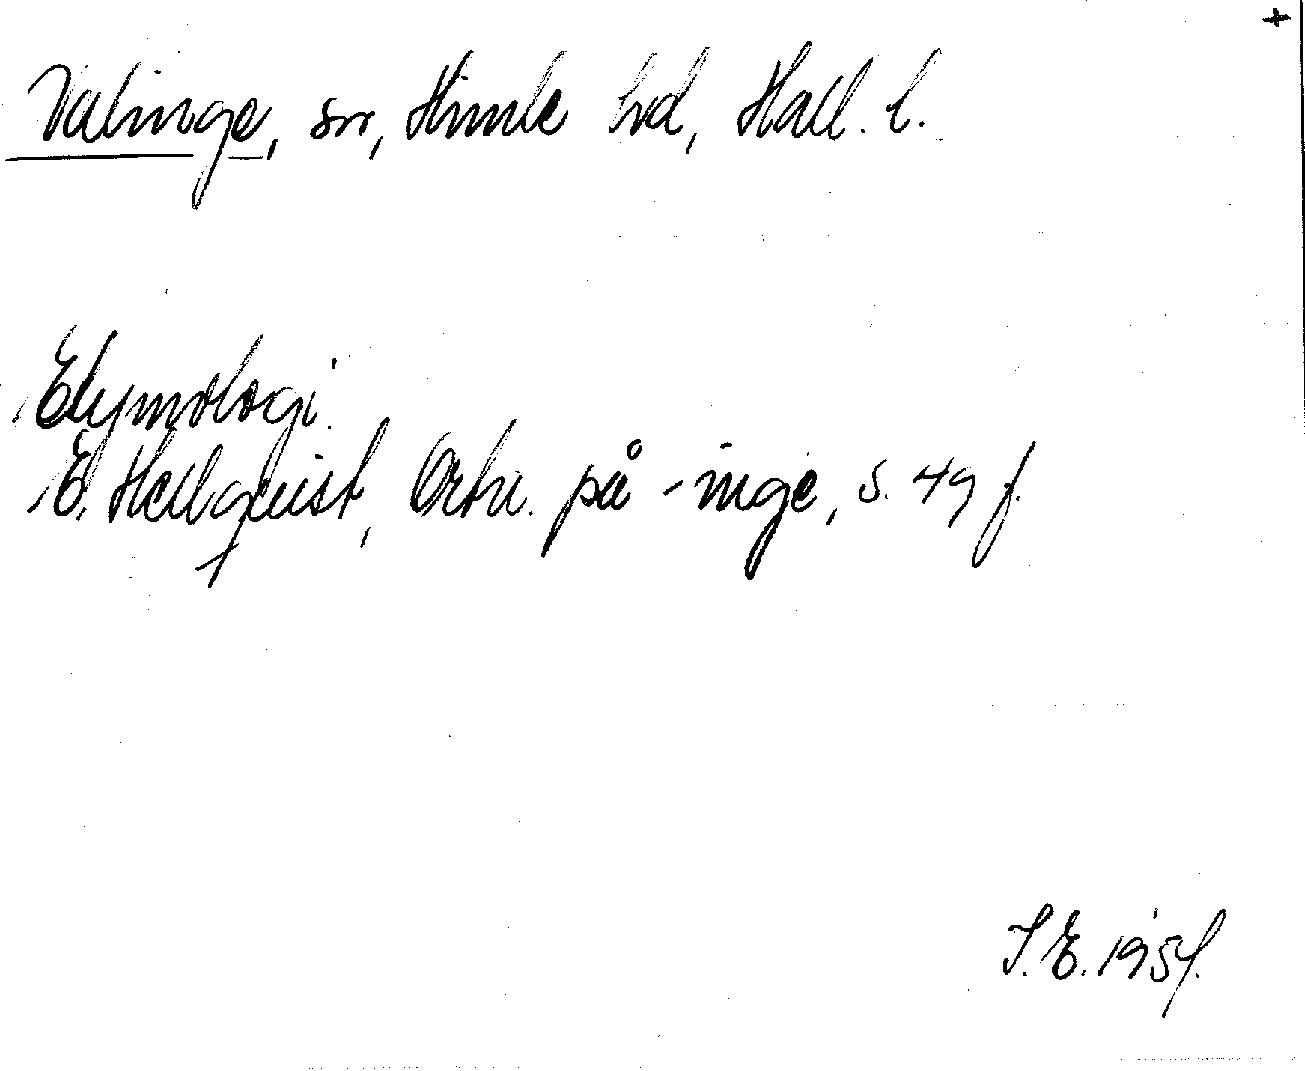 +
Valinge, sn, Himle hd, Hall. l.
Etymologi.
E. Hellquist, Ortn. på -inge, s. 49 f.
S.E. 1951.